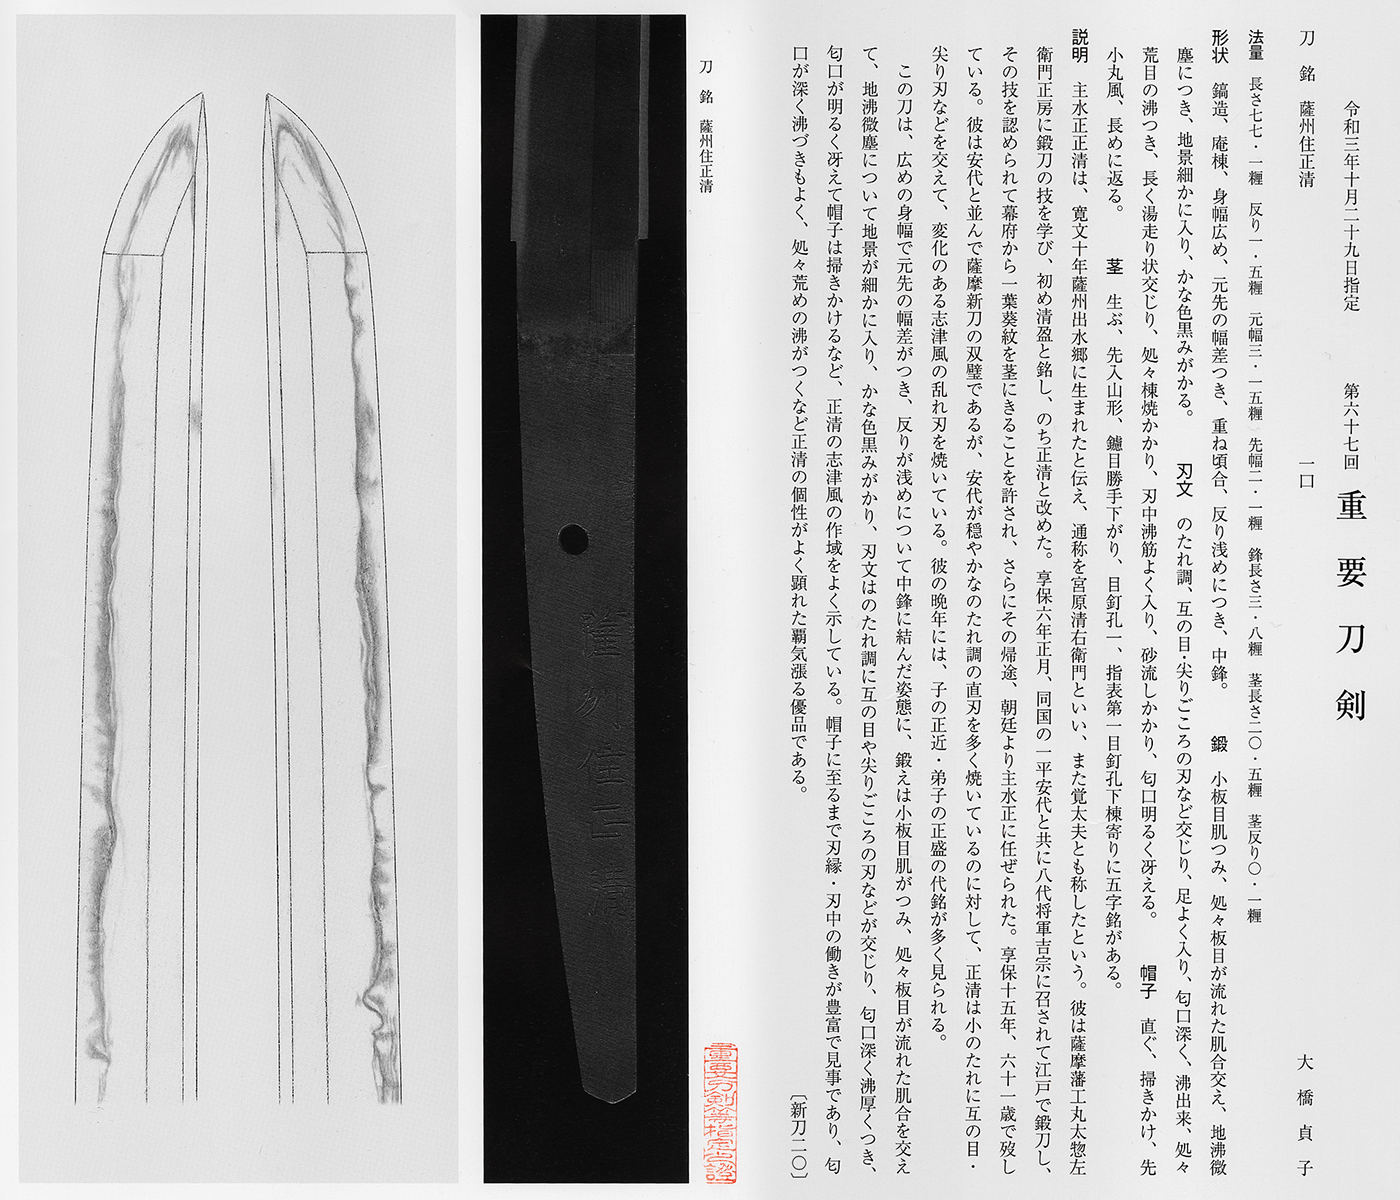 令和三年十月二十九日指定　第六十七回　重要刀剣
刀　銘　薩州住正清　一口　大橋貞子
法量　長さ七七・一糎　反り一・五糎　元幅三・一五糎　先幅二・一糎　鋒長さ三・八糎　茎長さ二〇・五糎　茎反り〇・一糎
形状　鎬造、庵棟、身幅広め、元先の幅差つき、重ね頃合、反り浅めにつき、中鋒。　鍛　小板目肌つみ、処々板目が流れた肌合交え、地沸微
塵につき、地景細かに入り、かな色黒みがかる。　刃文　のたれ調、互の目・尖りごころの刃など交じり、足よく入り、匂口深く、沸出来、処々
荒目の沸つき、長く湯走り状交じり、処々棟焼かかり、刃中沸筋よく入り、砂流しかかり、匂口明るく冴える。　帽子　直ぐ、掃きかけ、先
小丸風、長めに返る。　茎　生ぶ、先入山形、鑢目勝手下がり、目釘孔一、指表第一目釘孔下棟寄りに五字銘がある。
説明　主水正正清は、寛文十年薩州出水郷に生まれたと伝え、通称を宮原清右衛門といい、また覚太夫とも称したという。彼は薩摩藩工丸太惣左
衛門正房に鍛刀の技を学び、初め清盈と銘し、のち正清と改めた。享保六年正月、同国の一平安代と共に八代将軍吉宗に召されて江戸で鍛刀し、
その技を認められて幕府から一葉葵紋を茎にきることを許され、さらにその帰途、朝廷より主水正に任ぜられた。享保十五年、六十一歳で歿し
ている。彼は安代と並んで薩摩新刀の双璧であるが、安代が穏やかなのたれ調の直刃を多く焼いているのに対して、正清は小のたれに互の目・
尖り刃などを交えて、変化のある志津風の乱れ刃を焼いている。彼の晩年には、子の正近・弟子の正盛の代銘が多く見られる。
この刀は、広めの身幅で元先の幅差がつき、反りが浅めについて中鋒に結んだ姿態に、鍛えは小板目肌がつみ、処々板目が流れた肌合を交え
て、地沸微塵について地景が細かに入り、かな色黒みがかり、刃文はのたれ調に互の目や尖りごころの刃などが交じり、匂口深く沸厚くつき、
匂口が明るく冴えて帽子は掃きかけるなど、正清の志津風の作域をよく示している。帽子に至るまで刃縁・刃中の働きが豊富で見事であり、匂
口が深く沸づきもよく、処々荒めの沸がつくなど正清の個性がよく顕れた覇気漲る優品である。
〔新刀二〇〕
刀　銘　薩州住正清
重要刀剣等指定之証
薩州住正清